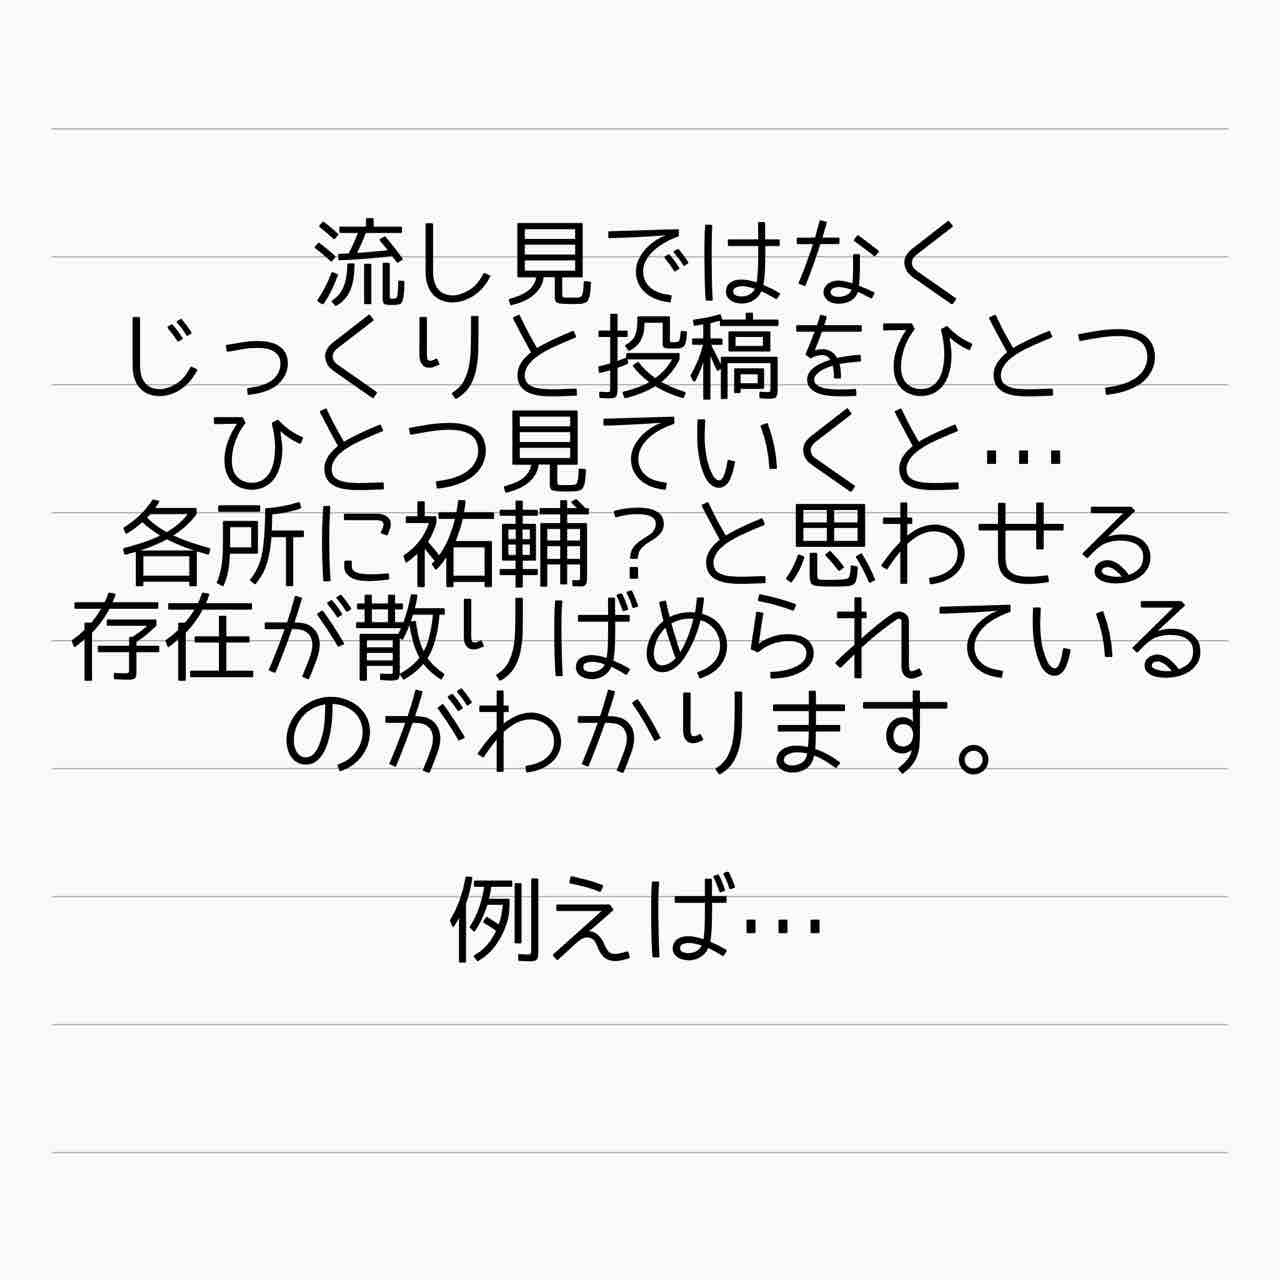 流し見ではなく
じっくりと投稿をひとつ
ひとつ見ていくと…
各所に祐輔？と思わせる
存在が散りばめられている
のがわかります。
例えば…